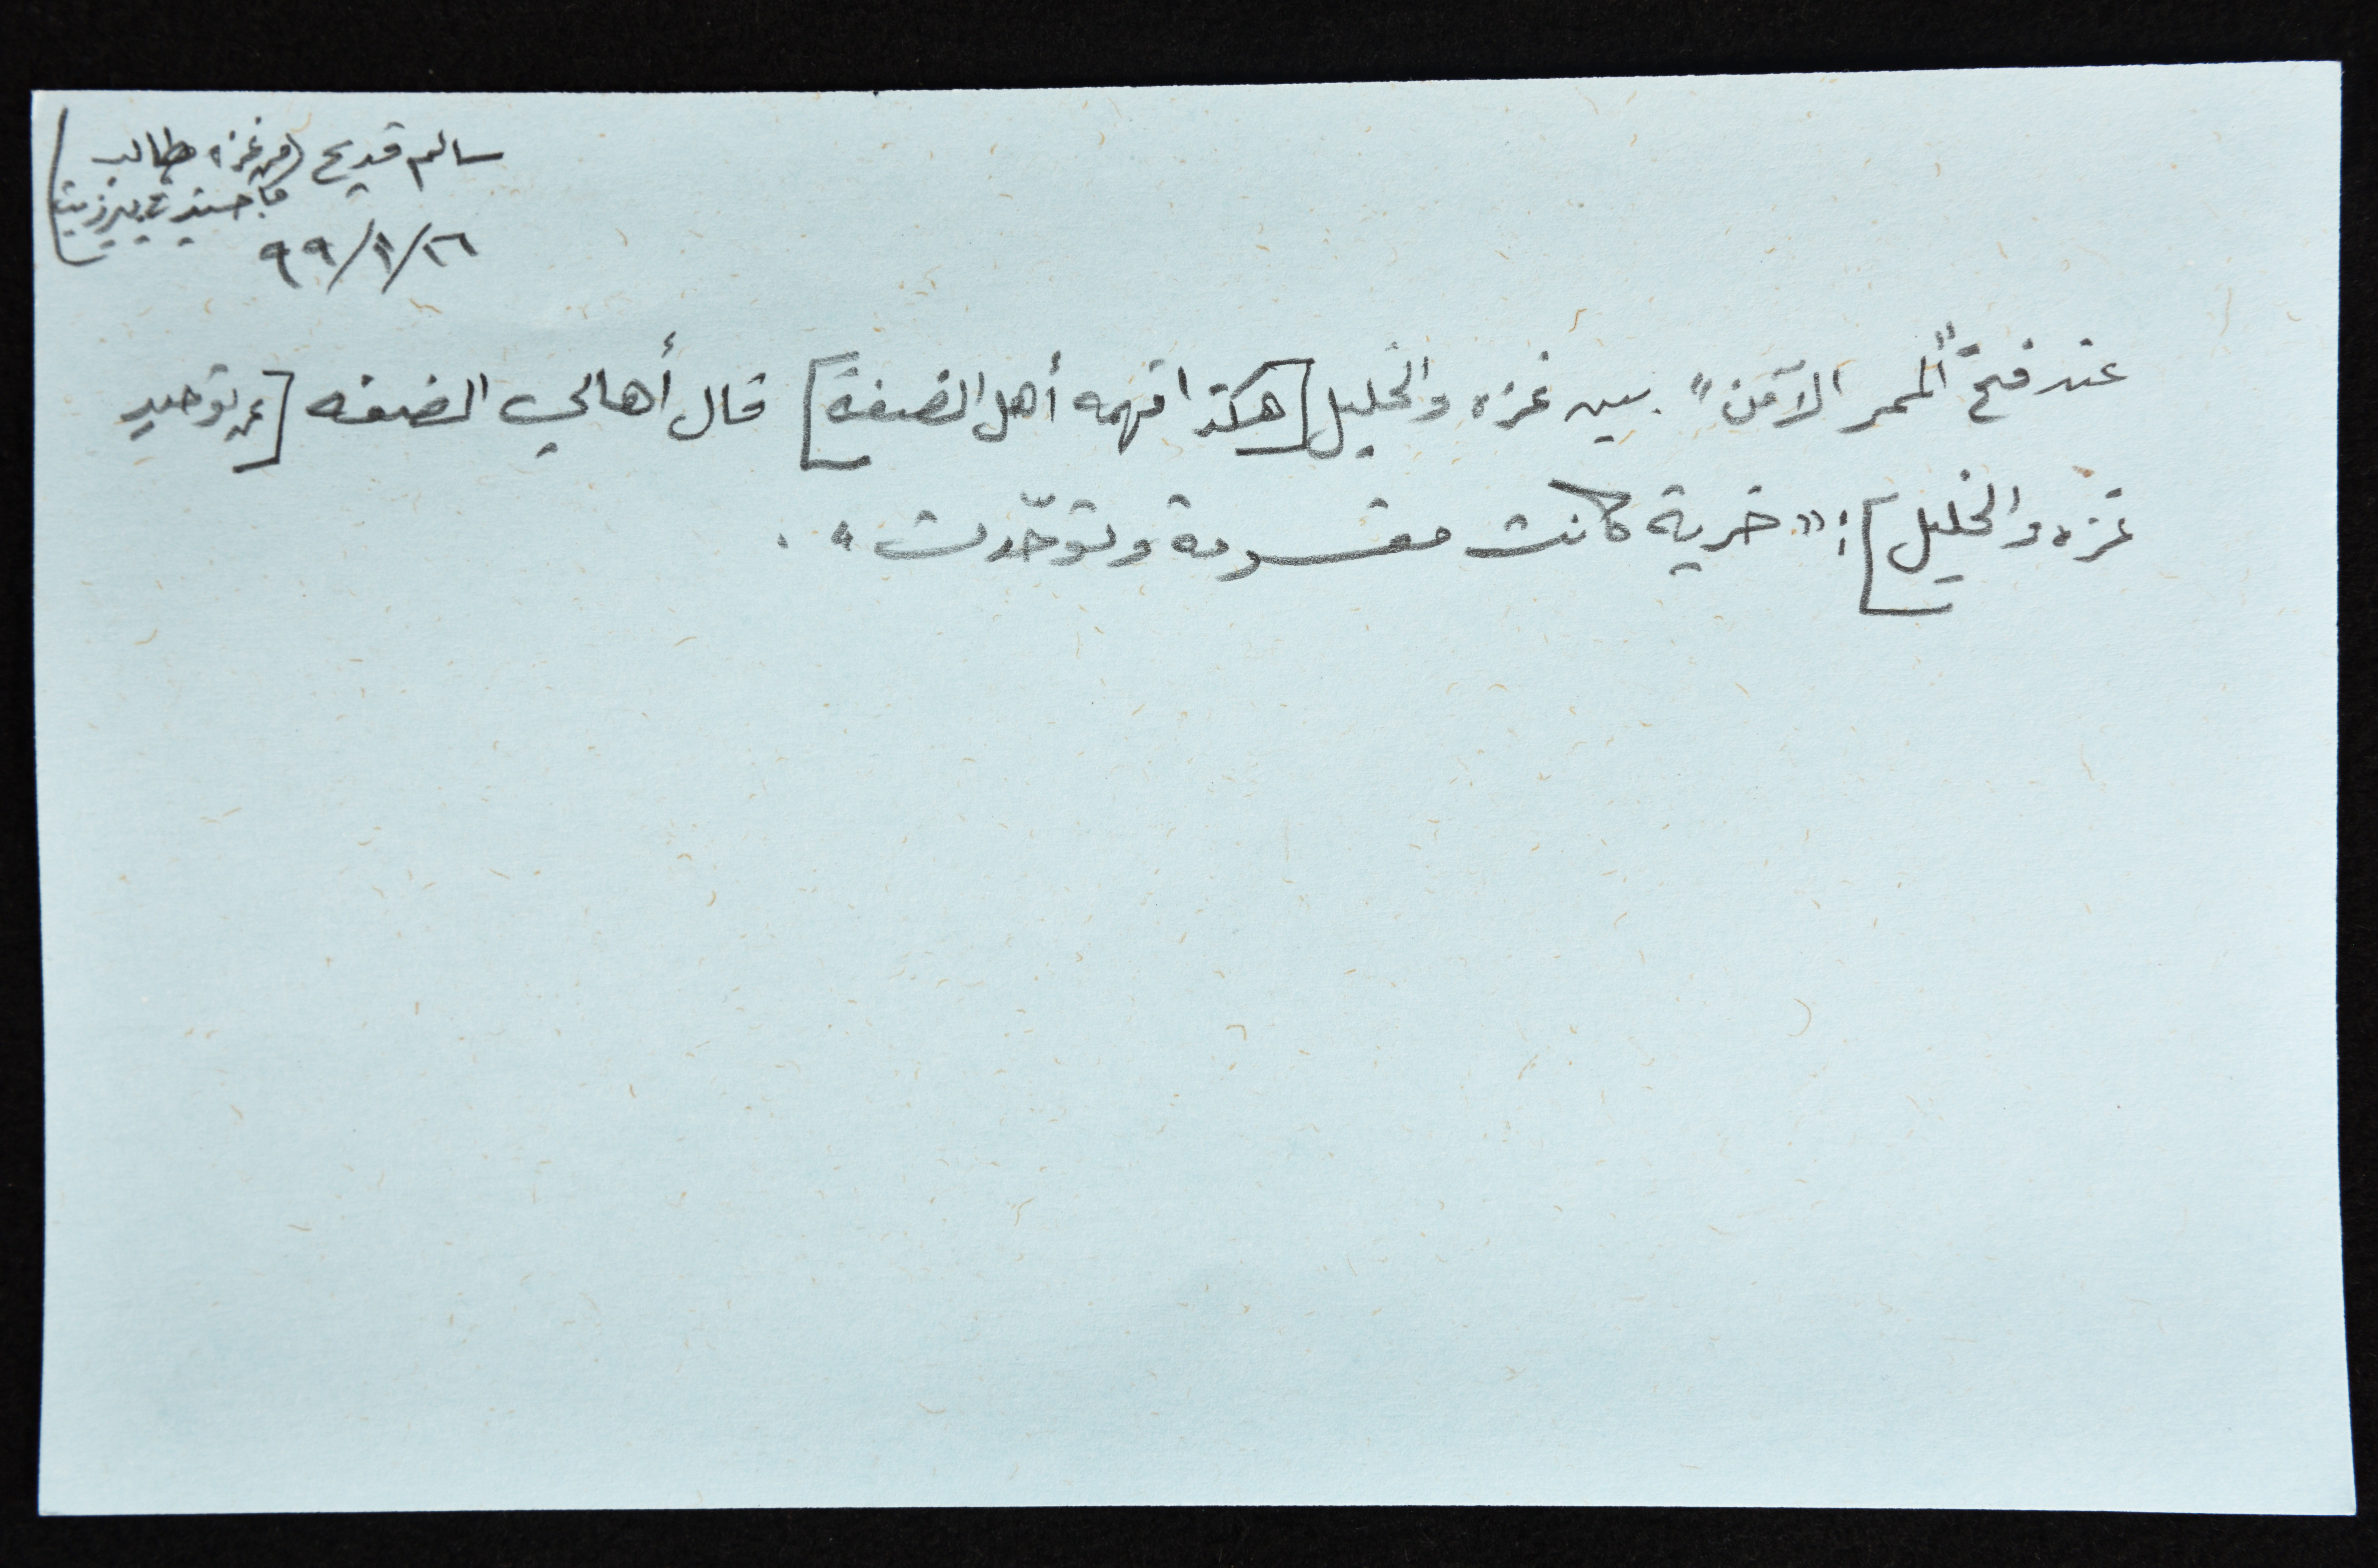 سالم قديح (من غزه، طالب
ماجستير في بيرزيت)
٩٩/١/٢٦
عند فتح "الممر الآمن" بين غزه والخليل [هكذا فهمه أهل الضفة] قال أهالي الضفه [عن توحيد
غزه والخليل]: "خرية كانت مقسومة وتوحّدت".